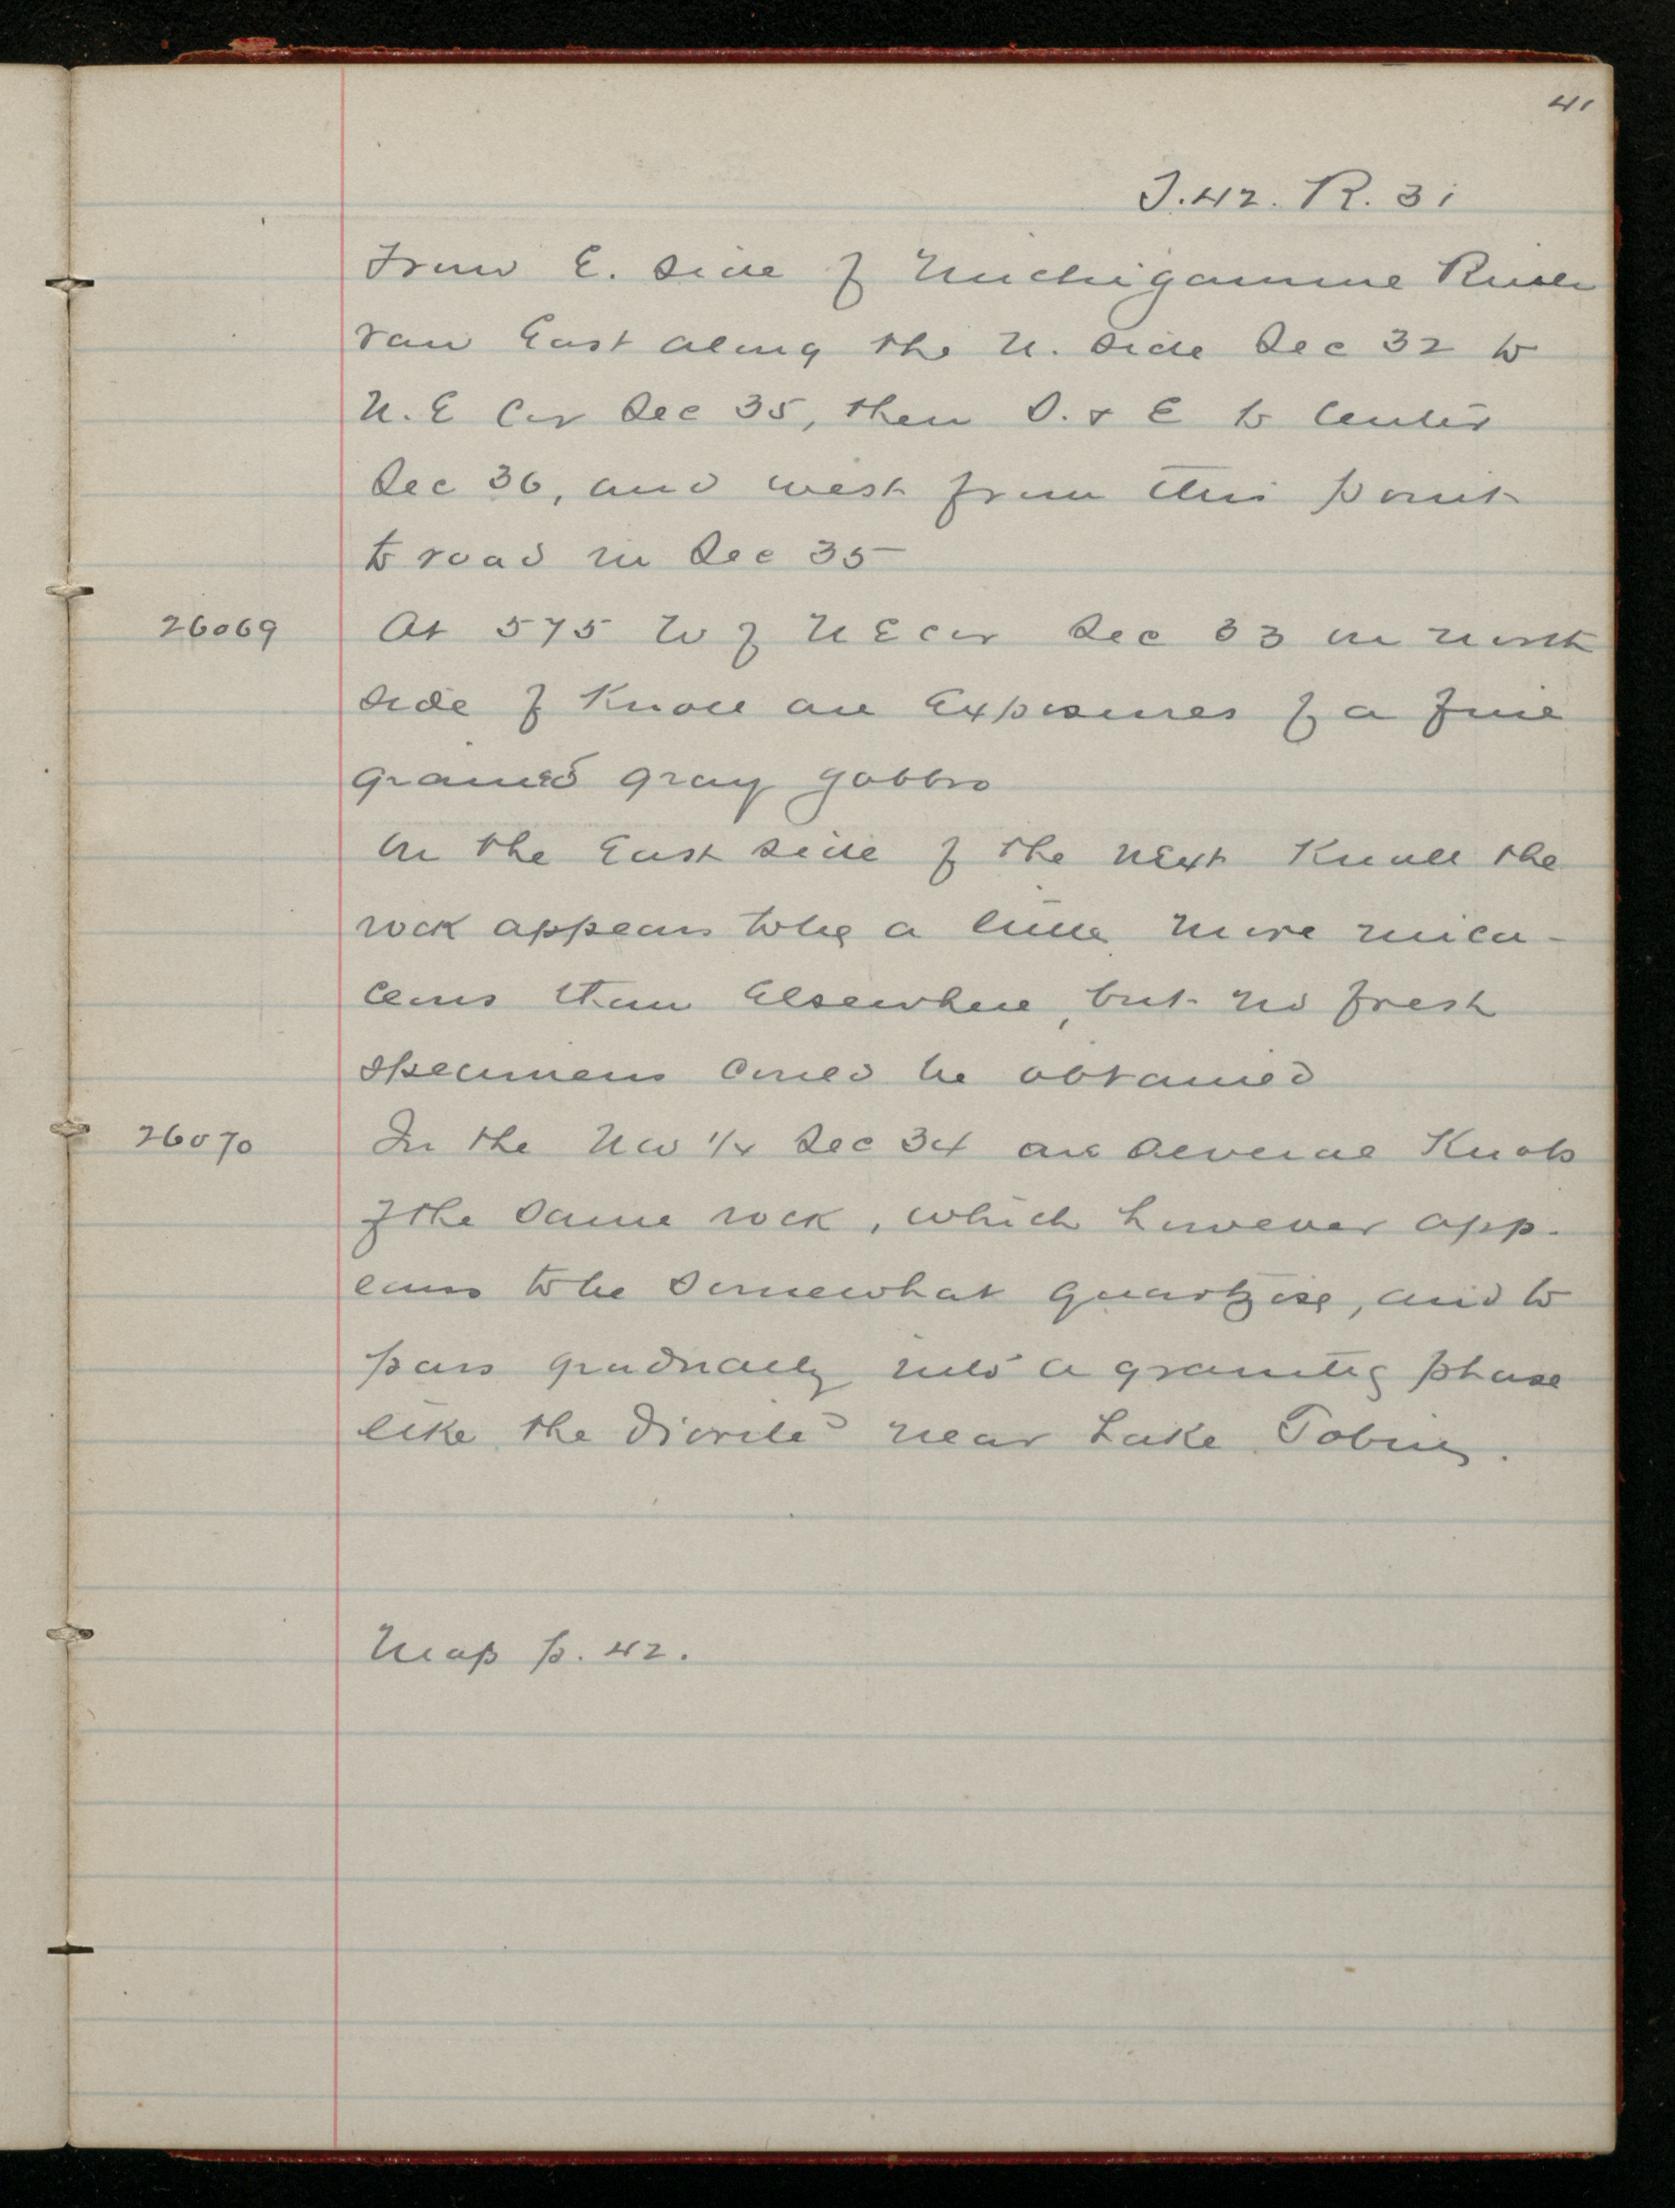 41
T.42. R. 31
From E. side of Michigamme River
ran East along the N. side Sec 32 to
N.E Cor Sec 35, then S. & E to Center
Sec 36, and west from this point
to road in Sec 35
26069 At 575 W of N E cor Sec 33 on north
side of Knoll are Exposures of a fine
grained gray gabbro
On the East side of the next Knoll the
rock appears to be a little more mica-
ceous than Elsewhere, but no fresh
specimens could be obtained
26070 In the NW 1/4 Sec 34 are several Knobs
of the same rock, which however app-
ears to be somewhat quartzose, and to
pass gradually into a granitic phase
like the diorite near Lake Tobin.
Map p. 42.